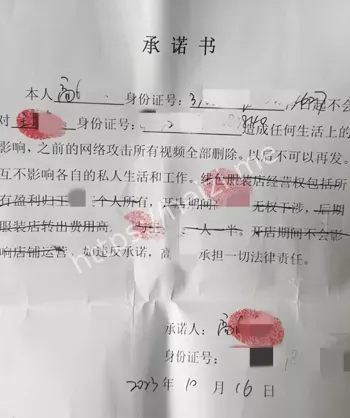 承诺书
本人高 身份证号:3 不会
对王 身份证号: 造成任何生活上的
影响,之前的网络攻击所有视频全部删除。以后不可以再发。
互不影响各自的私人生活和工作。线上服装店经营权包括所
有盈利归王 个人所有,开店期间 无权干涉,后期
服装店转出费用高 与王 一人一半。开店期间不会影
响店铺运营 如违反承诺,高 承担一切法律责任。
承诺人:高
身份证号:
2023年10月16日